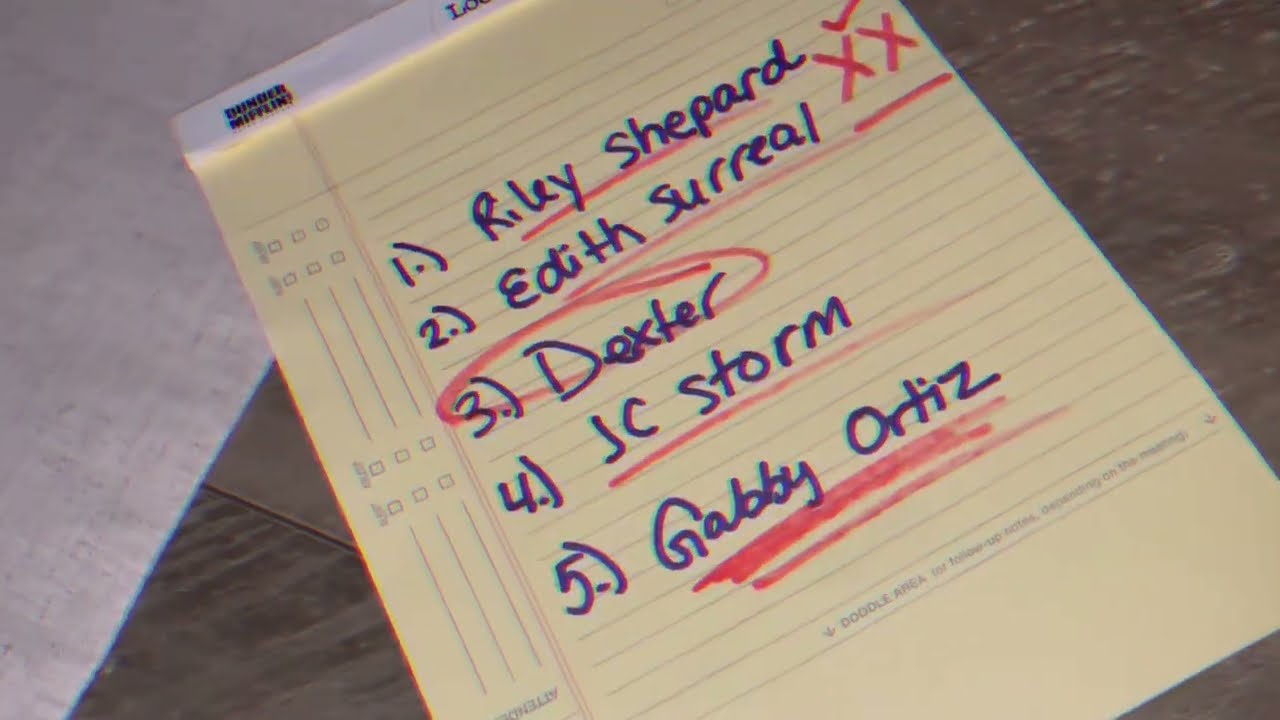 DUNDER
MIFFLIN
1.) Riley Shepard
2.) Edith Surreal
3.) Dexter
4.) JC Storm
5.) Gabby Ortiz
DOODLE AREA (or follow-up notes, depending on the meeting)